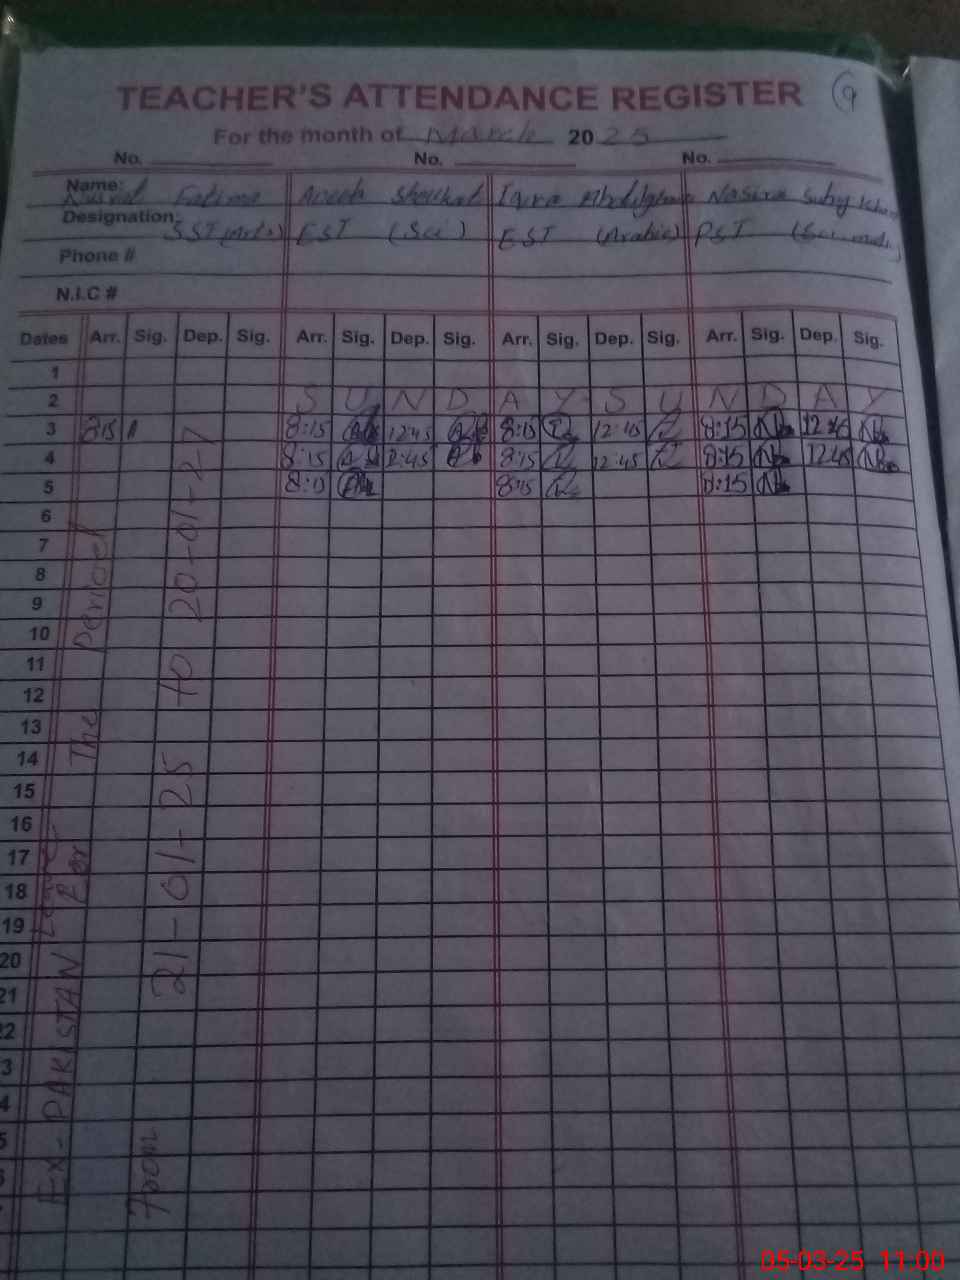 TEACHER'S ATTENDANCE REGISTER 9
For the month of March 2025
No. No. No.
Name: Fatima Shoukat Iqra Nasira
Designation: SST (Arts) EST (Sci) EST (Arabic) PST (Sci math)
Phone #
N.I.C #
Dates Arr. Sig. Dep. Sig. Arr. Sig. Dep. Sig. Arr. Sig. Dep. Sig. Arr. Sig. Dep. Sig.
1
2 S U N D A Y S U N D A Y
3 8:15 A 8:15 12:45 8:15 12:45 8:15 12:45
4 8:15 12:45 8:15 12:45 8:15 12:45
5 8:15 8:15 8:15
6
7
8
9
10
11
12
13
14
15
16
17
18
19
20
21
22
3
4
5
Ex-PAKISTAN Leave For The Period
From 21-01-25 to 20-01-27
05-03-25 11:00